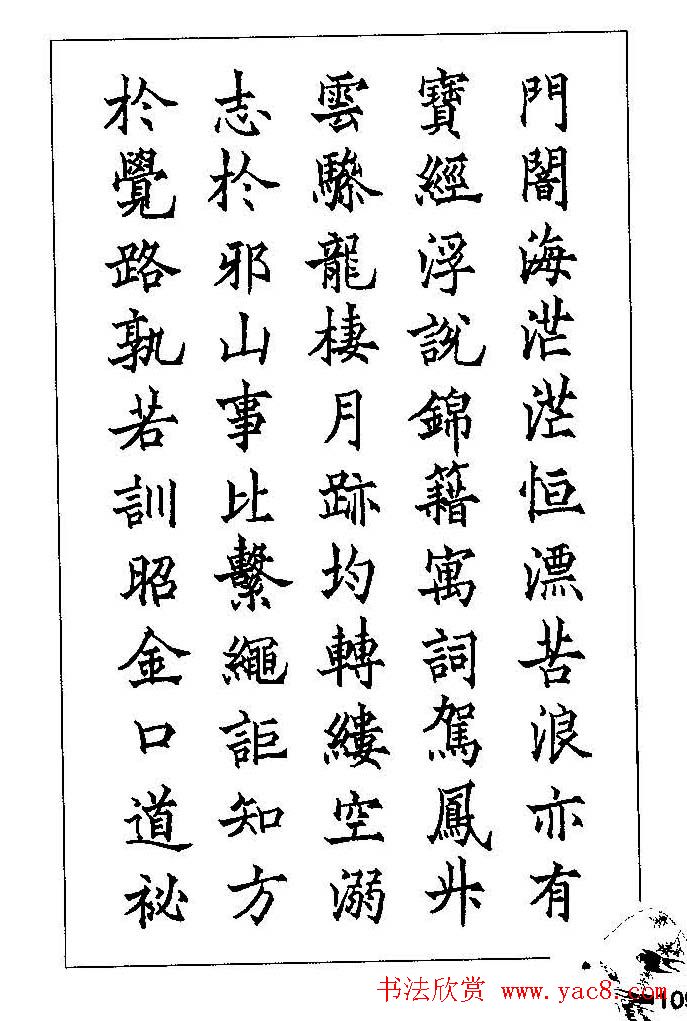 門闇海茫茫恒漂苦浪亦有
寶經浮說錦籍寓詞駕鳳升
雲驂龍棲月跡均轉縷空溺
志於邪山事比繫繩詎知方
於覺路孰若訓昭金口道祕
书法欣赏 www.yac8.com
109